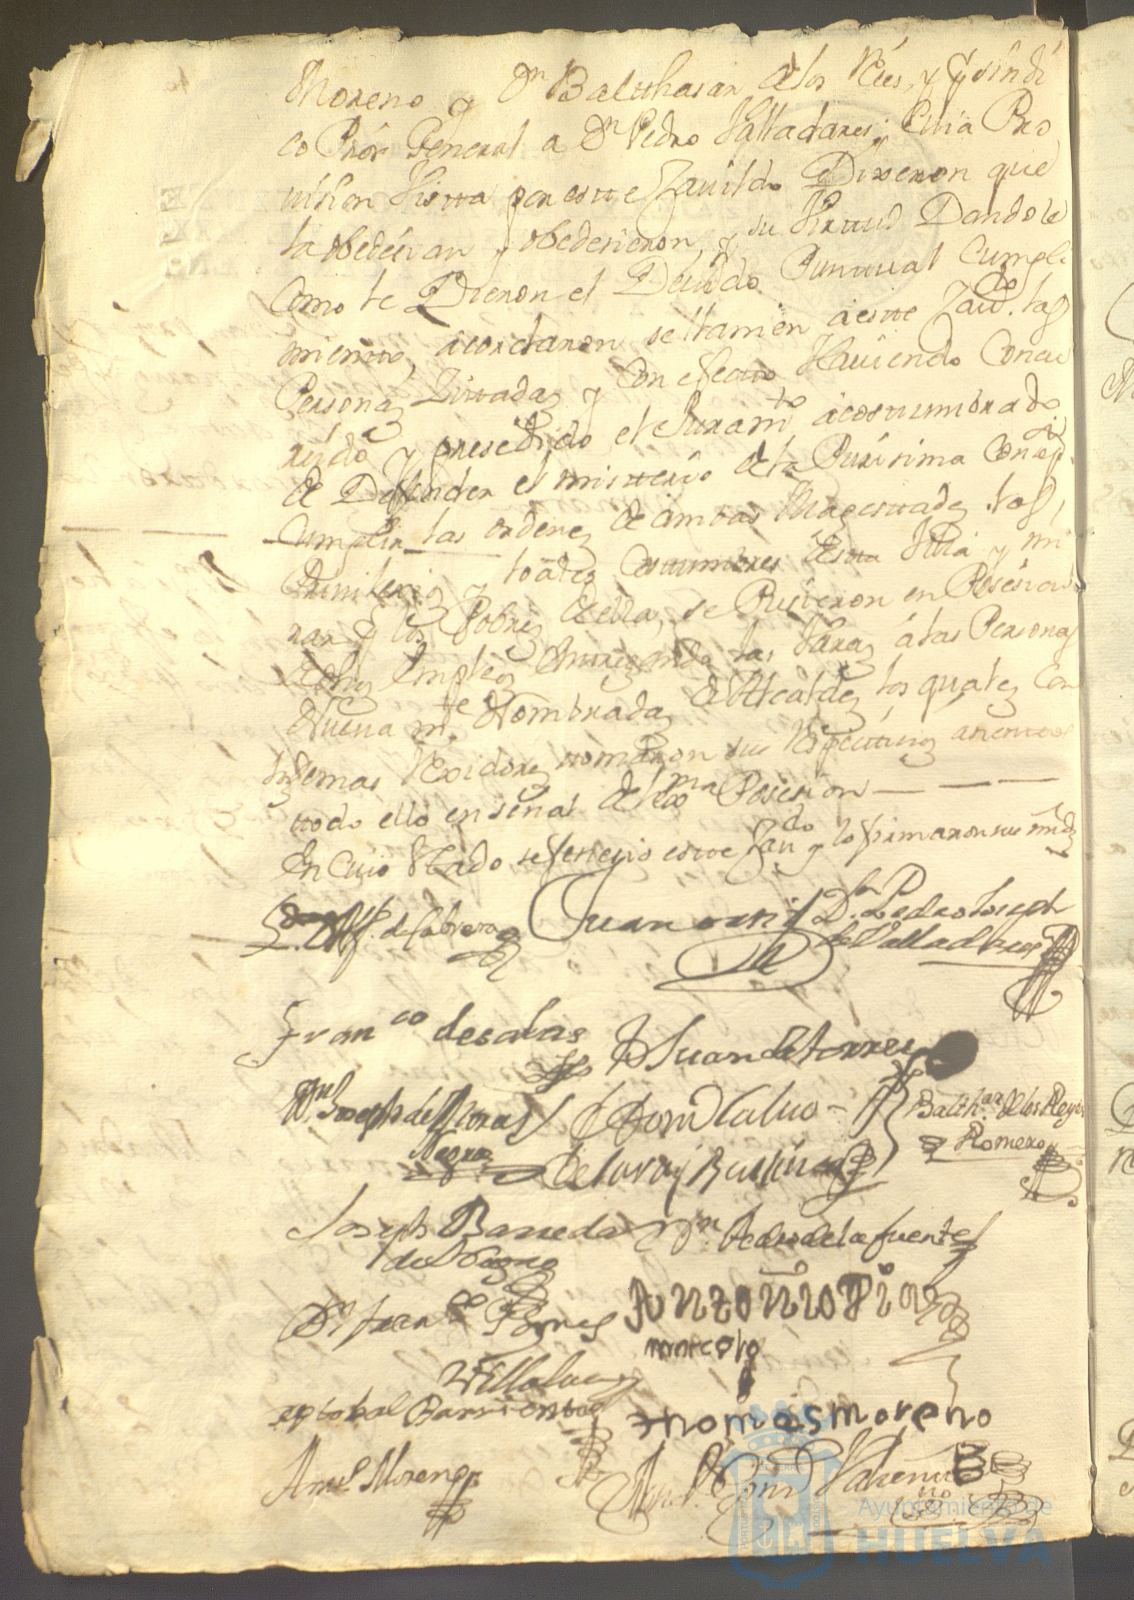 Moreno y Dn Balthasar de los Rées, y Sindi
co Prór General a Dn Pedro Valladares; Cuia Pro
vision Vista por este Zavildo Dixeron que
la obedesian y obedesieron, y su Virtud Dandole
Como le Dieron el Devido Puntual Cumpli
miento, acordaron se llamen a este Zavdo. las
Personas Zittadas y Con efecto Haviendo Concu
rrido y presedido el Juramto acostumbrado
de Defender el misterio de la Purisima Conzepn
Cumplir las ordenes de ambas Magestades, las
Privilexios y loables Costumbres desta Villa y mi
rar por los Pobres della, se Pusieron en Posesion
dhos Empleos Entregando las Varas a las Personas
Nueva mte. Nombradas de Alcaldes los quales Con
los demas Rexidores tomaron sus Respectivos asientos
todo ello en señal de la Posesion
En Cuio estado se fenesio este Zavdo y lo firmaron sus mrds
de Cabrera Juan ortiz Dn. Pedro Joseph
de Valladares
Franco de salas Dn Juan de torres
Dn Joseph de Moras Dn Calvo Balthar de los Reyes
Negro de Lara y Romero
Joseph Barreda Dn Pedro de la fuente
del
Dn Franco Pones Antonio Pin
Villalva
xptobal Barrientos thomas moreno
Anl Moreno
Ayuntamiento de
HUELVA